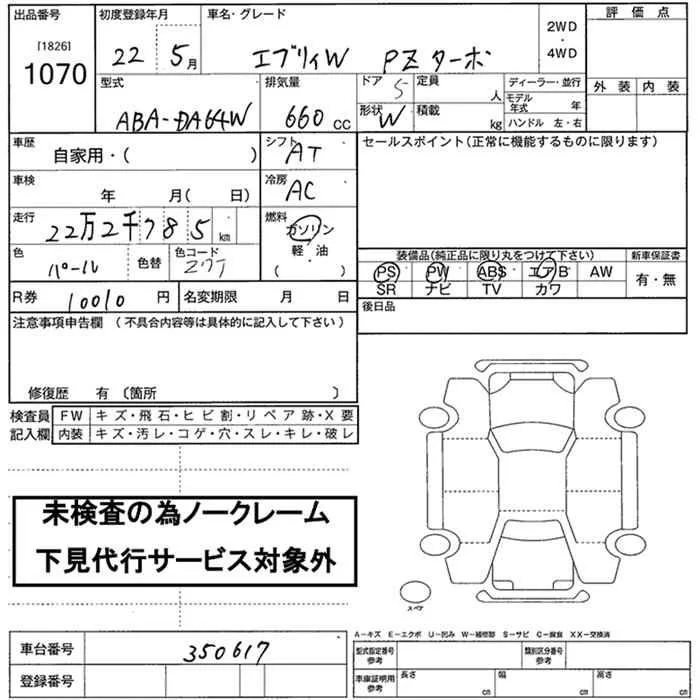 出品番号
[1826]
1070
初度登録年月
22 5月
車名・グレード
エブリィW PZターボ
2WD
・
4WD
評価点
外装 内装
型式
ABA-DA64W
排気量
660 CC
ドア 5
形状 W
定員 人
積載 kg
ディーラー・並行
モデル年式 年
ハンドル 左・右
車歴
自家用・( )
シフト AT
セールスポイント(正常に機能するものに限ります)
車検
年 月( 日)
冷房 AC
走行
22万2千785 km
燃料
ガソリン
軽・油
( )
色
パール
色替
色コード
Z7T
装備品(純正品に限り丸をつけて下さい)
PS PW ABS エアB AW
SR ナビ TV カワ
新車保証書
有・無
R券 10010 円
名変期限 月 日
後日品
注意事項申告欄 (不具合内容等は具体的に記入して下さい)
修復歴 有 〔箇所 〕
検査員
記入欄
FW キズ・飛石・ヒビ割・リペア跡・X要
内装 キズ・汚レ・コゲ・穴・スレ・キレ・破レ
未検査の為ノークレーム
下見代行サービス対象外
スペア
A-キズ E-エクボ U-凹み W-補修跡 S-サビ C-腐食 XX-交換済
車台番号 350617
登録番号
型式指定番号
参考
類別区分番号
参考
車庫証明用
参考
長さ cm
幅 cm
高さ cm